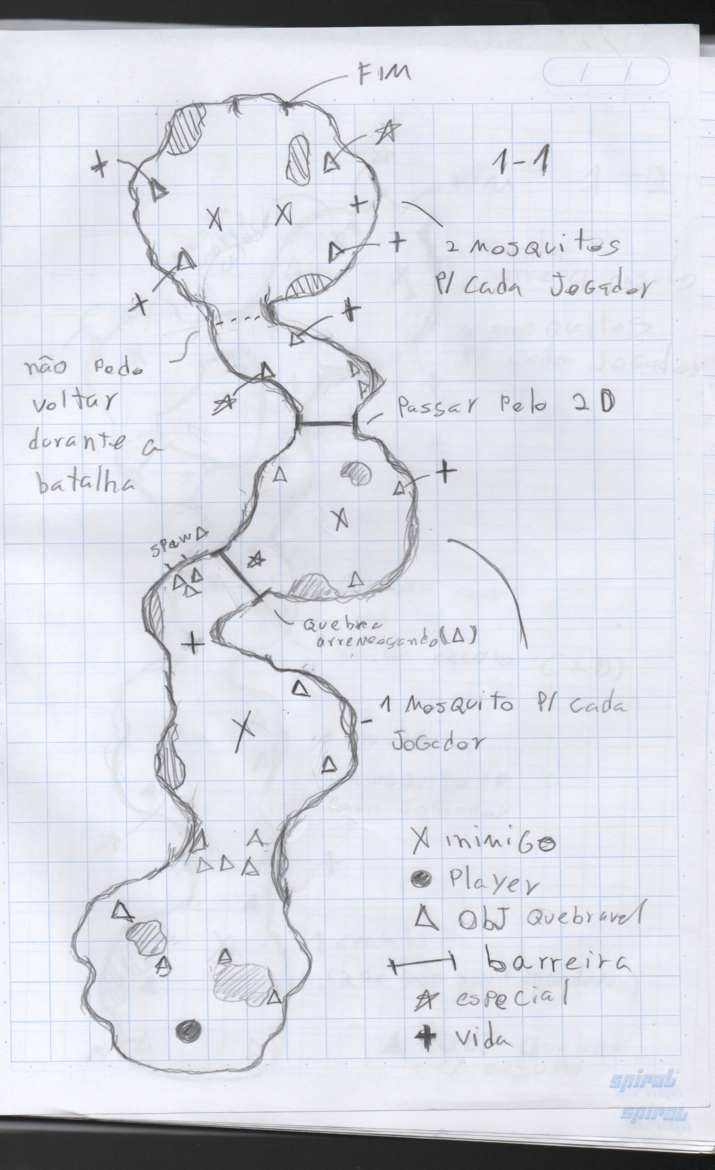 FIM
1-1
2 mosquitos
P/ Cada Jogador
não pode
voltar
durante a
batalha
Passar Pelo 2D
spawn
Quebra
arremessando(Δ)
1 Mosquito P/ Cada
Jogador
X inimigo
● Player
Δ Obj Quebravel
barreira
☆ especial
+ vida
spiral
spiral